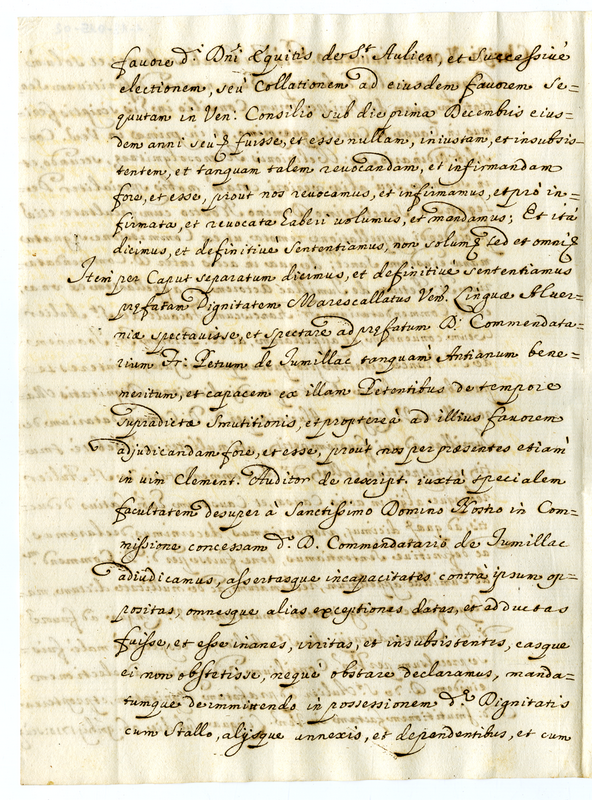 favore d.i Dni Equitis de S.t Aulier, et Successivè
electionem, seù Collationem ad eiusdem favorem Se=
quutam in Ven. Consilio sub die prima Decembris eius=
dem anni seù fuisse, et esse nullam, iniustam, et insubsis=
tentem, et tanquàm talem revocandam, et infirmandam
fore, et esse, proùt nos revocamus, et infirmamus, et prò in=
firmata, et revocata haberi volumus, et mandamus; Et ità
dicimus, et definitivè Sententiamus, non solum sed et omni
Item per Caput separatum dicimus, et definitivè sententiamus
pręfatam Dignitatem Marescallatus Ven. Linguæ Alver=
niæ spectavisse, et spectare ad pręfatum D. Commendata=
rium Fr: Petrum de Jumillac tanquàm Antianum bene=
meritum, et capacem ex illam Petentibus de tempore
supradictæ Smutitionis, et proptereà ad illius favorem
adjudicandam fore, et esse, proùt nos per præsentes etiam
in vim Clement. Auditor de rescript. iuxtà specialem
facultatem desuper à Sanctissimo Domino Nostro in Com=
missione concessam d.o D. Commendatario de Jumillac
adiudicamus, assertasque incapacitates contrà ipsum op=
positas, omnesque alias exceptiones datas, et adductas
fuisse, et esse inanes, irritas, et insubsistentes, easque
ei non obstetisse, nequè obstare declaramus, manda=
tumque de immittendo in possessionem d.æ Dignitatis
cum Stallo, alijsque annexis, et dependentibus, et cum